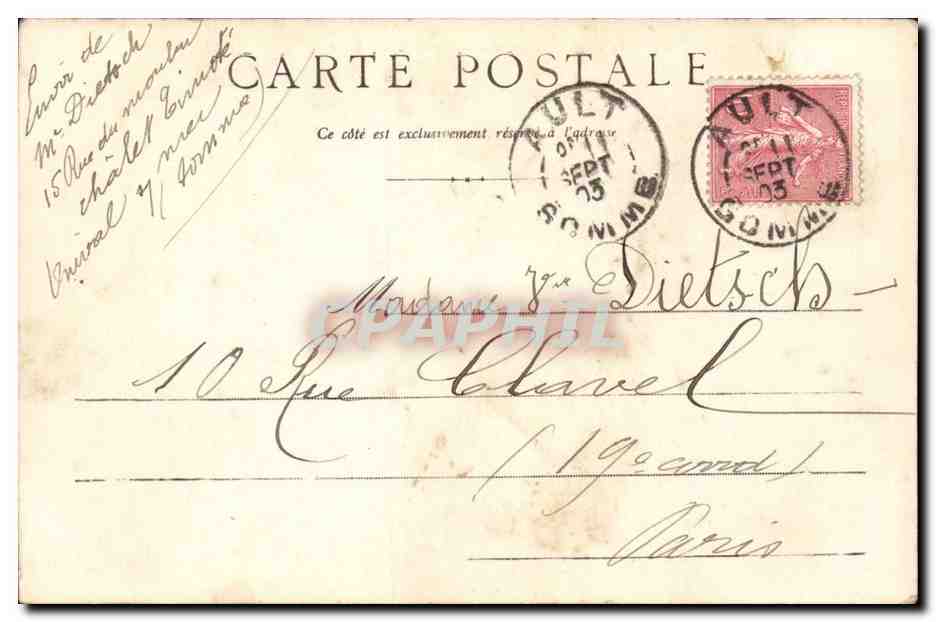 Envoi de
Mr Dietsch
15 Rue du moulin
châlet
Onival s/ mer
(Somme)
CARTE POSTALE
Ce côté est exclusivement réservé à l'adresse
AULT
11
SEPT
03
SOMME
AULT
11
SEPT
03
SOMME
REP
CPAPHIL
Madame Vve Dietsch
10 Rue Clavel
(19e arrond)
Paris